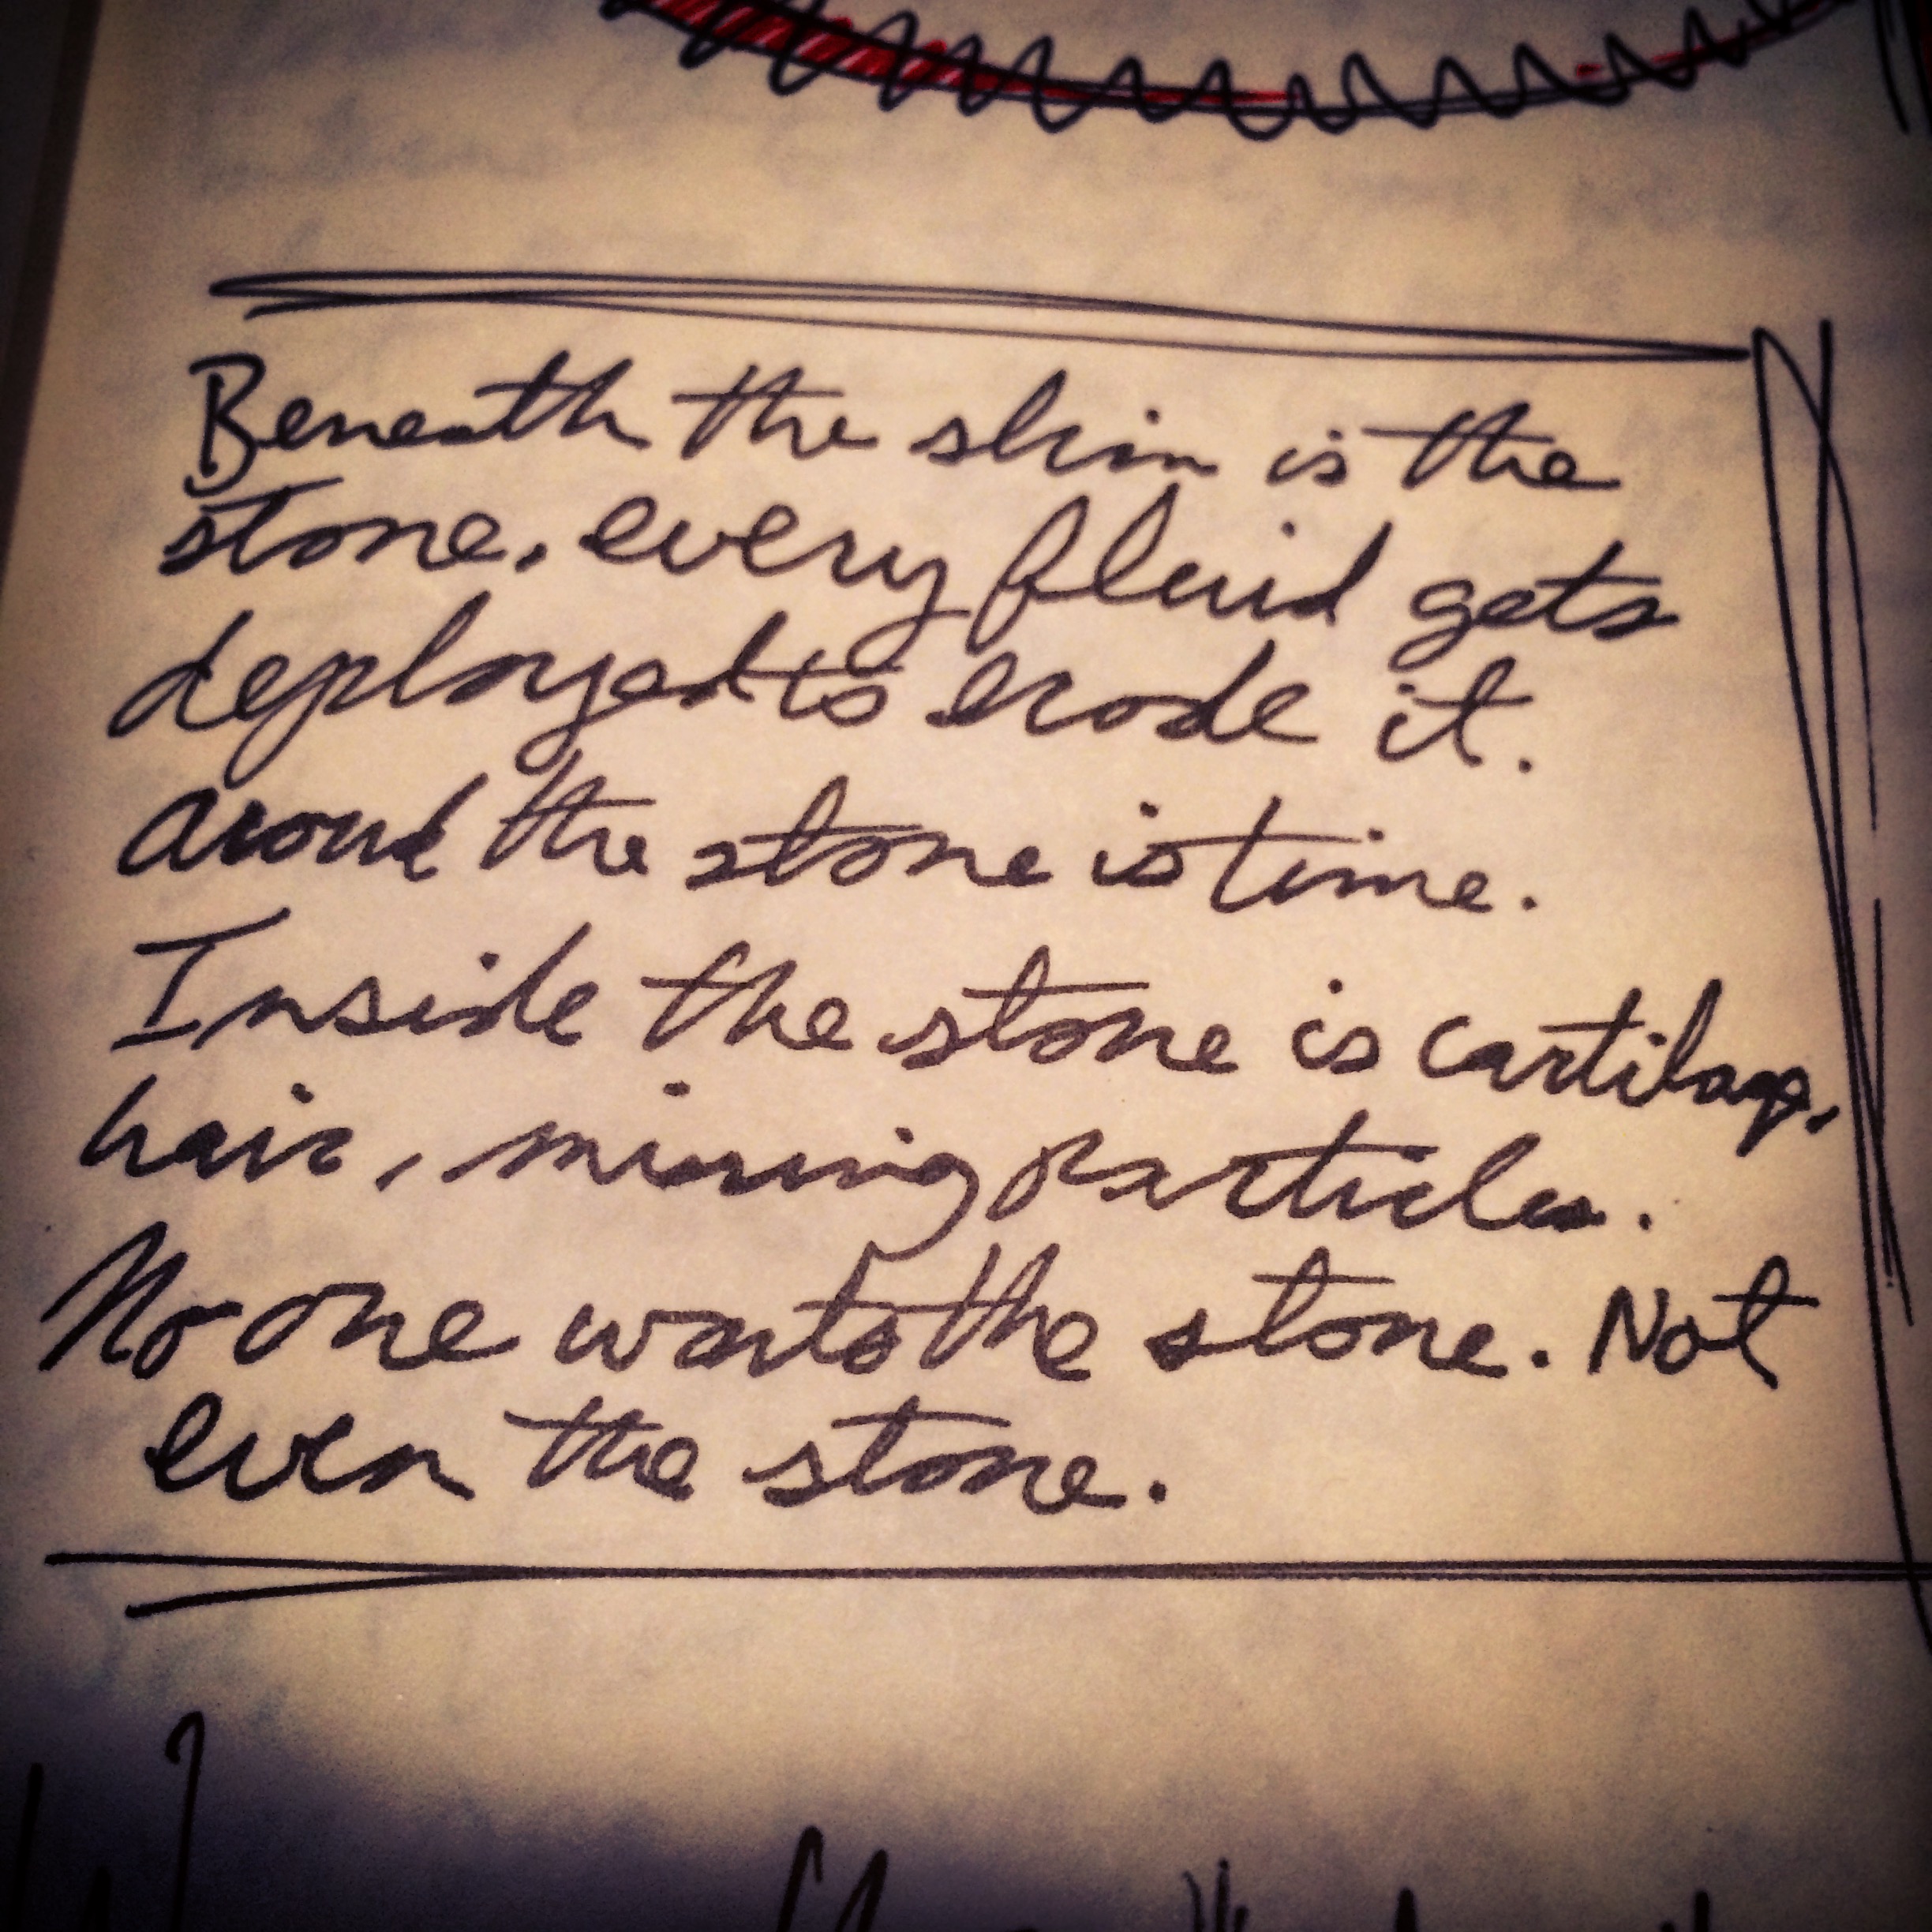 Beneath the skin is the
stone, every fluid gets
deployed to erode it.
Around the stone is time.
Inside the stone is cartilage,
hair, missing particles.
No one wants the stone. Not
even the stone.